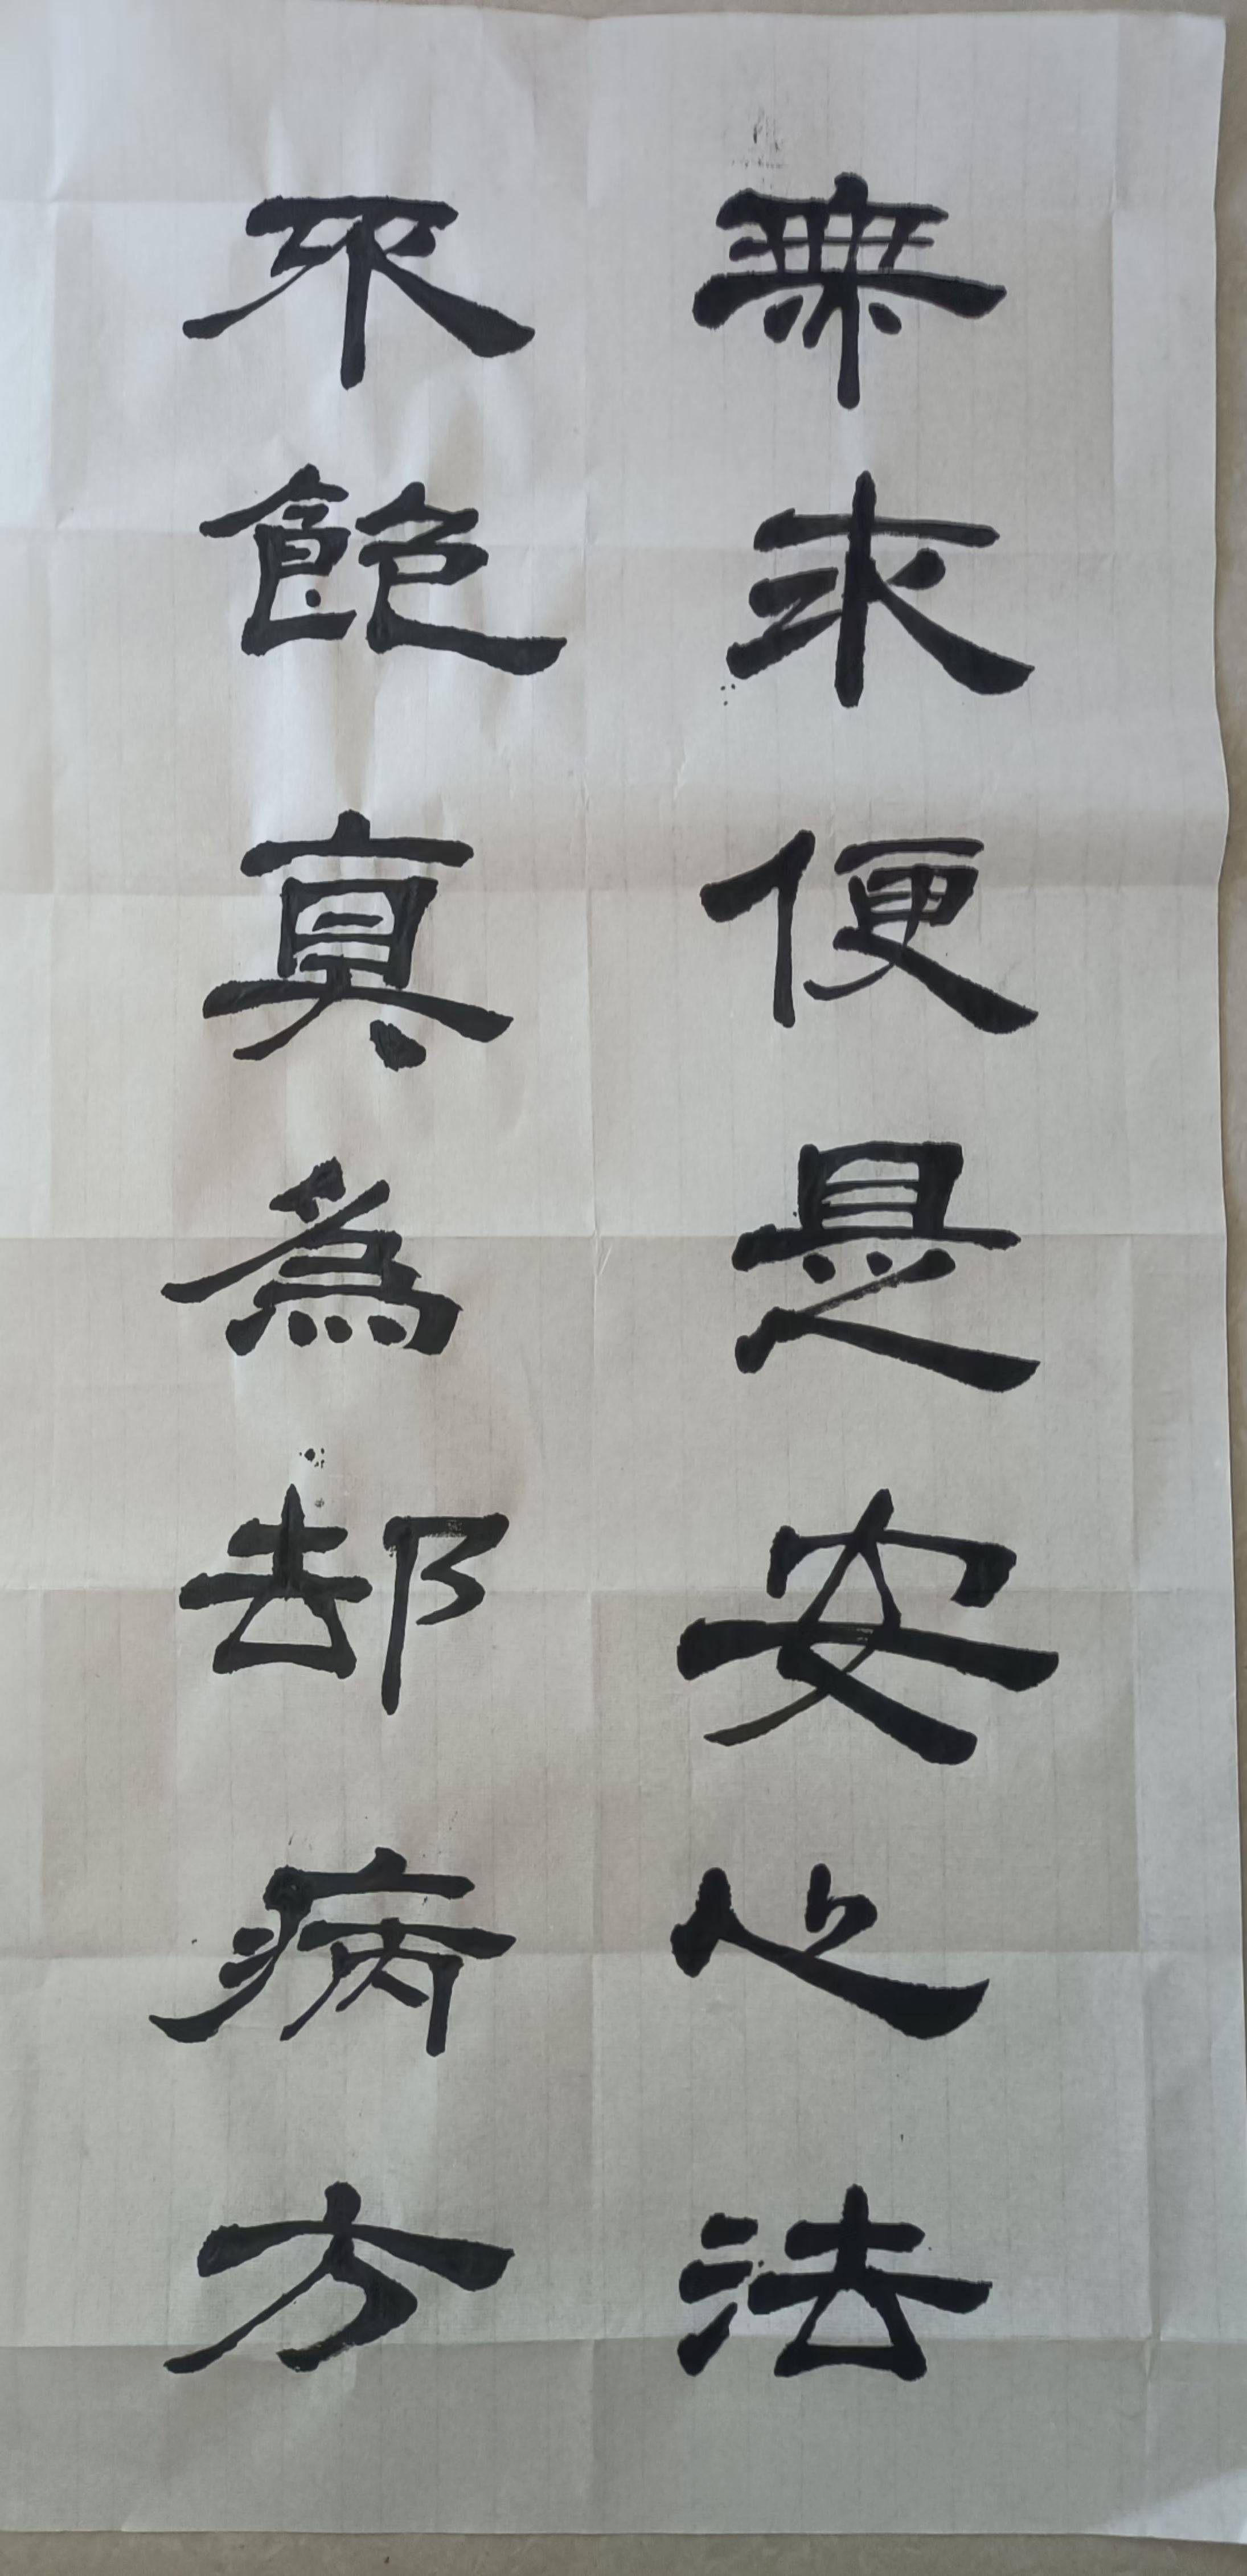 無求便是安心法
不飽真為却病方